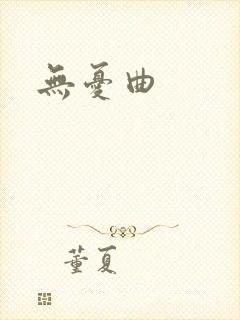 無憂曲
董夏